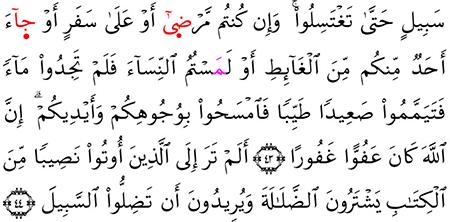 سَبِيلٍ حَتَّىٰ تَغْتَسِلُوا۟ ۚ وَإِن كُنتُم مَّرْضَىٰٓ أَوْ عَلَىٰ سَفَرٍ أَوْ جَآءَ
أَحَدٌ مِّنكُم مِّنَ ٱلْغَآئِطِ أَوْ لَمَسْتُمُ ٱلنِّسَآءَ فَلَمْ تَجِدُوا۟ مَآءً
فَتَيَمَّمُوا۟ صَعِيدًا طَيِّبًا فَٱمْسَحُوا۟ بِوُجُوهِكُمْ وَأَيْدِيكُمْ ۗ إِنَّ
ٱللَّهَ كَانَ عَفُوًّا غَفُورًا ﴿٤٣﴾ أَلَمْ تَرَ إِلَى ٱلَّذِينَ أُوتُوا۟ نَصِيبًا مِّنَ
ٱلْكِتَٰبِ يَشْتَرُونَ ٱلضَّلَٰلَةَ وَيُرِيدُونَ أَن تَضِلُّوا۟ ٱلسَّبِيلَ ﴿٤٤﴾